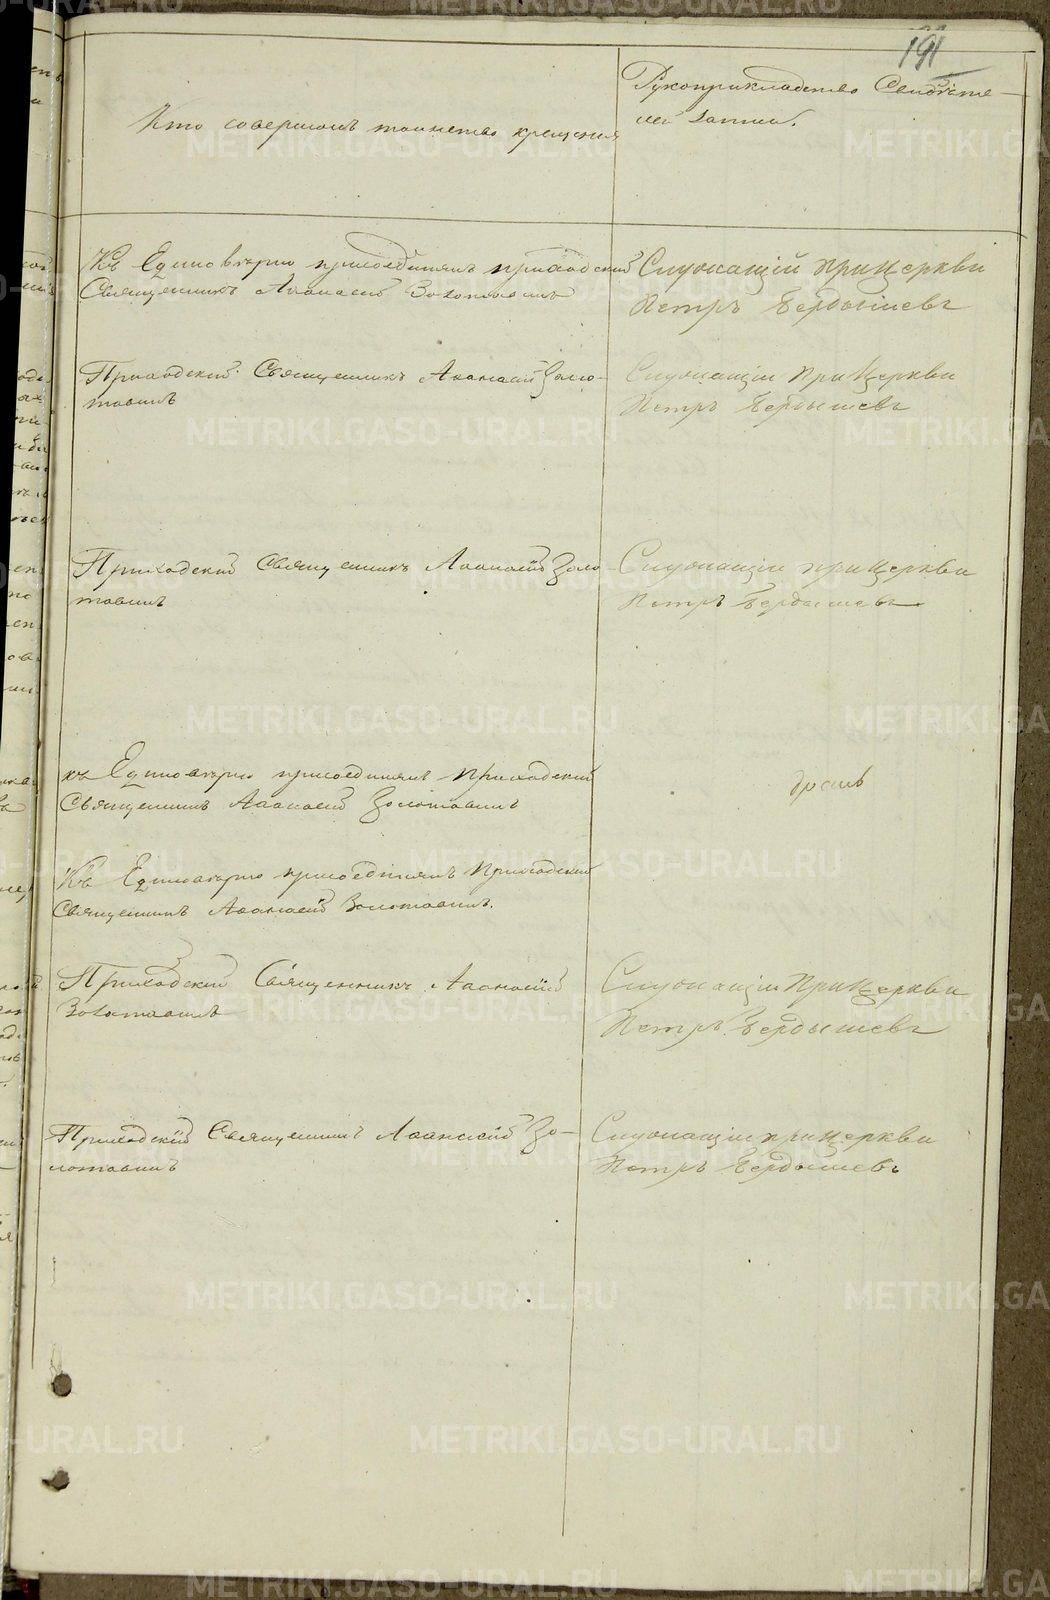 191
Кто совершалъ таинство крещенія
Рукоприкладство Свидѣте-
лей записи.
Къ Единовѣрію присоединялъ приходскій
Священникъ Аѳанасій Золотавинъ
Служащій при Церкви
Петръ Бердышевъ
Приходскій Священникъ Аѳанасій Золо-
тавинъ
Служащій при Церкви
Петръ Бердышевъ
Приходскій Священникъ Аѳанасій Золо-
тавинъ
Служащій при Церкви
Петръ Бердышевъ
къ Единовѣрію присоединялъ приходскій
Священникъ Аѳанасій Золотавинъ
Къ Единовѣрію присоединялъ Приходскій
Священникъ Аѳанасій Золотавинъ.
Приходскій Священникъ Аѳанасій
Золотавинъ
Служащій при Церкви
Петръ Бердышевъ
Приходскій Священникъ Аѳанасій Зо-
лотавинъ
Служащій при Церкви
Петръ Бердышевъ
METRIKI.GASO-URAL.RU